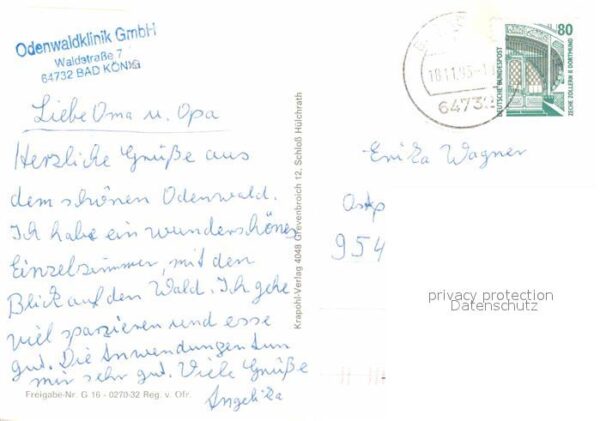 Odenwaldklinik GmbH
Waldstraße 7
64732 BAD KÖNIG
Liebe Oma u. Opa
Herzliche Grüße aus
dem schönen Odenwald.
Ich habe ein wunderschönes
Einzelzimmer, mit den
Blick auf den Wald. Ich gehe
viel spazieren und esse
gut. Die Anwendungen tun
mir sehr gut. Viele Grüße
Angelika
Freigabe-Nr. G 16 - 0270-32 Reg. v. Ofr.
Krapohl-Verlag 4048 Grevenbroich 12, Schloß Hülchrath
18.11.93
6473
80
DEUTSCHE BUNDESPOST
ZECHE ZOLLERN II DORTMUND
Erika Wagner
954
privacy protection
Datenschutz